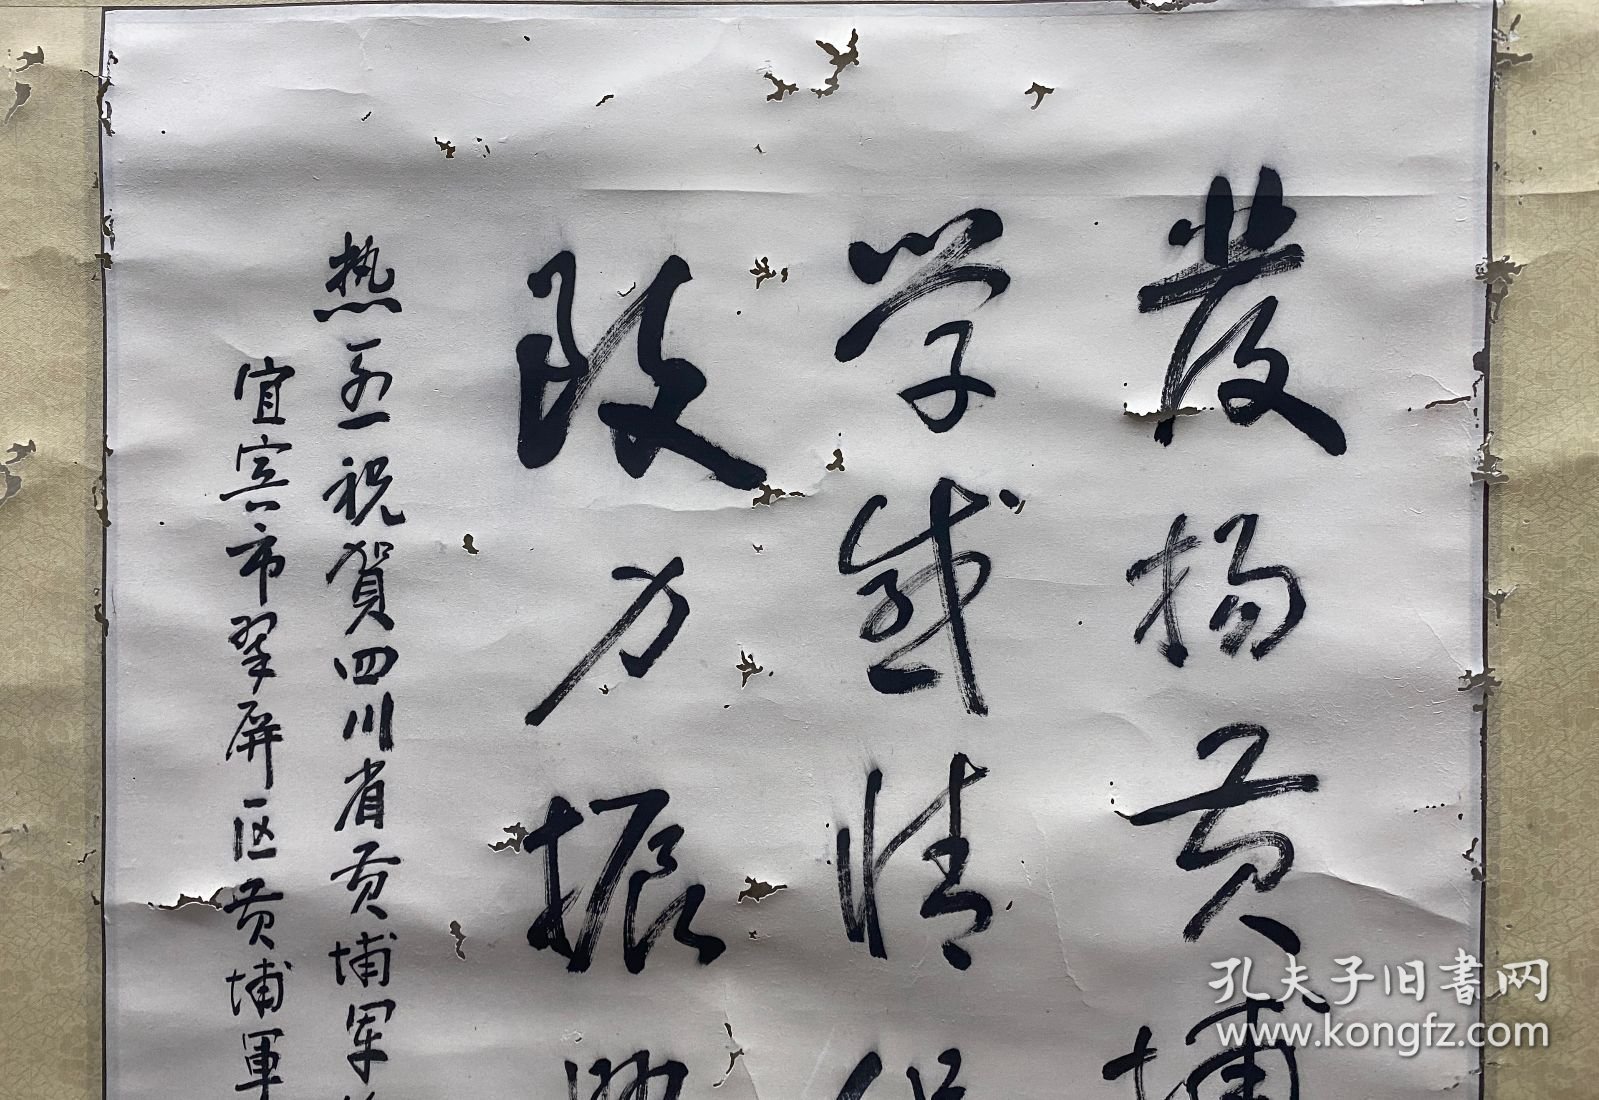 發扬黄埔
学感情
致力振
热烈祝賀四川省黄埔军
宜宾市翠屏区黄埔軍
孔夫子旧書网
www.kongfz.com